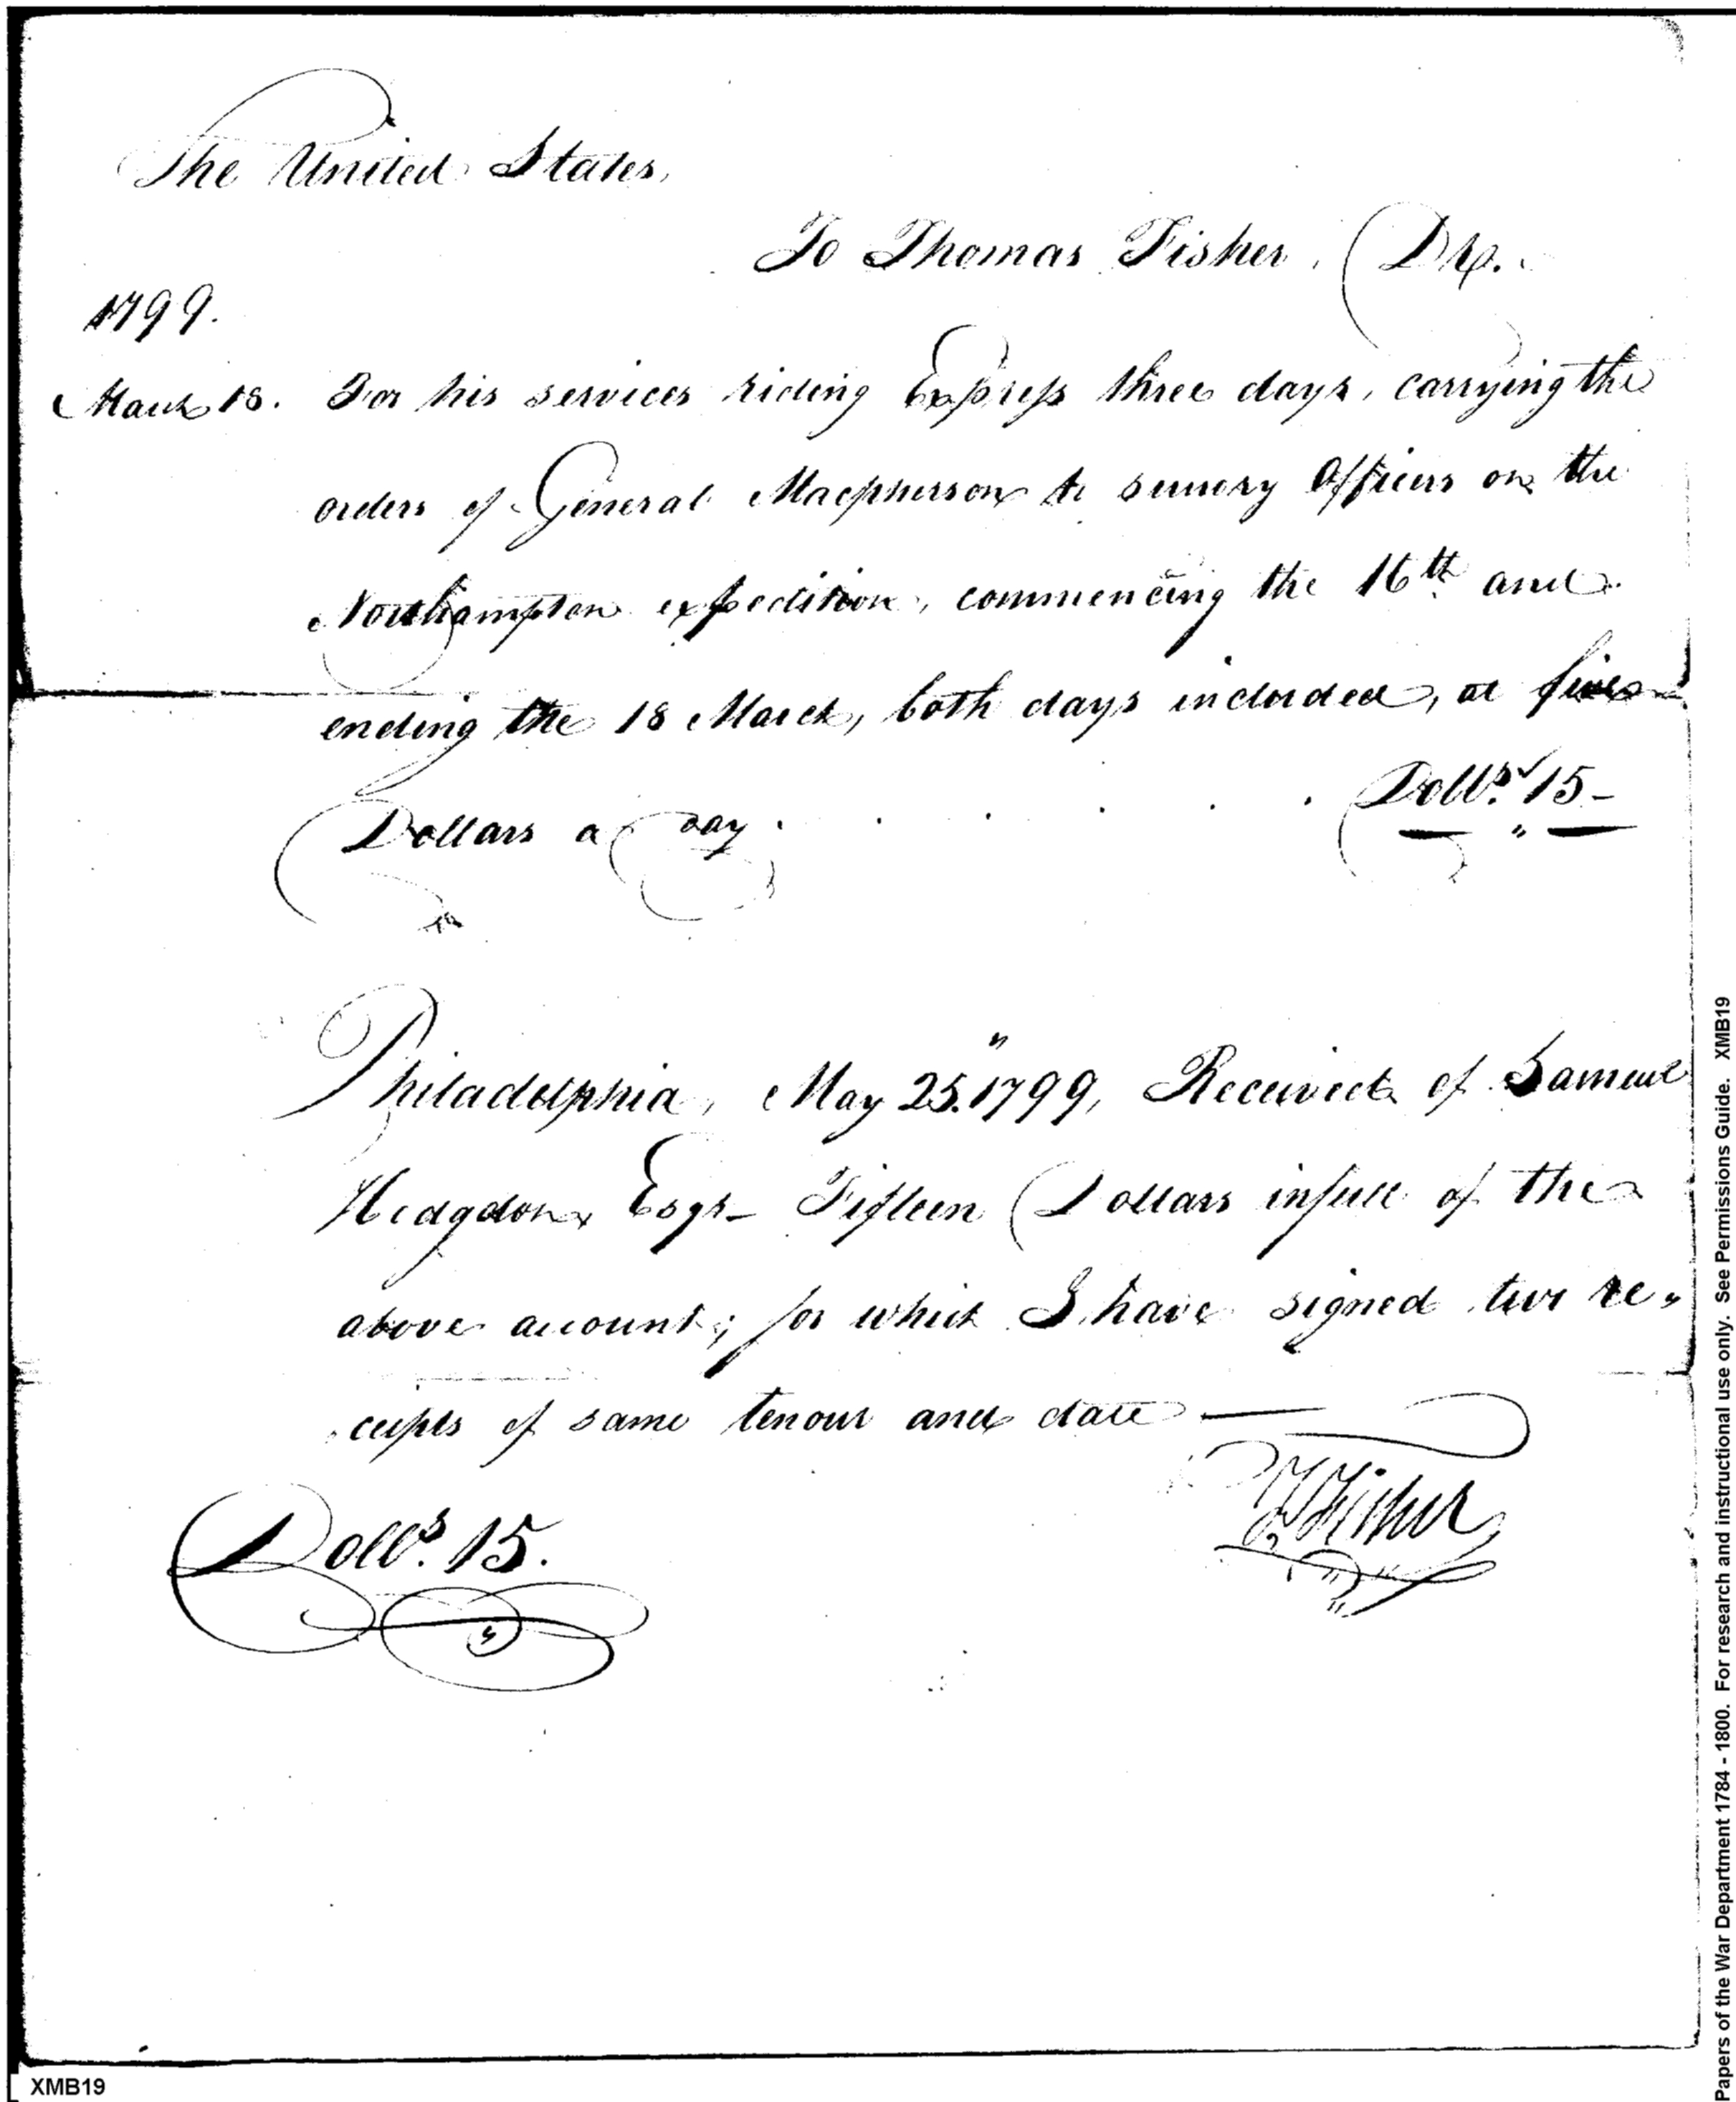 The United States,
To Thomas Fisher, Dr.
1799.
March 18. For his services riding Express three days, carrying the
orders of General Macpherson to sundry Officers on the
Northampton expedition, commencing the 16th and
ending the 18 March, both days included, at five
Dollars a Day . . . . . Dolls. 15-
Philadelphia, May 25. 1799, Received of Samuel
Hodgdon Esqr- Fifteen Dollars in full of the
above account; for which I have signed two re„
ceipts of same tenour and date —
Dolls. 15.
T Fisher
XMB19
Papers of the War Department 1784 - 1800. For research and instructional use only. See Permissions Guide. XMB19